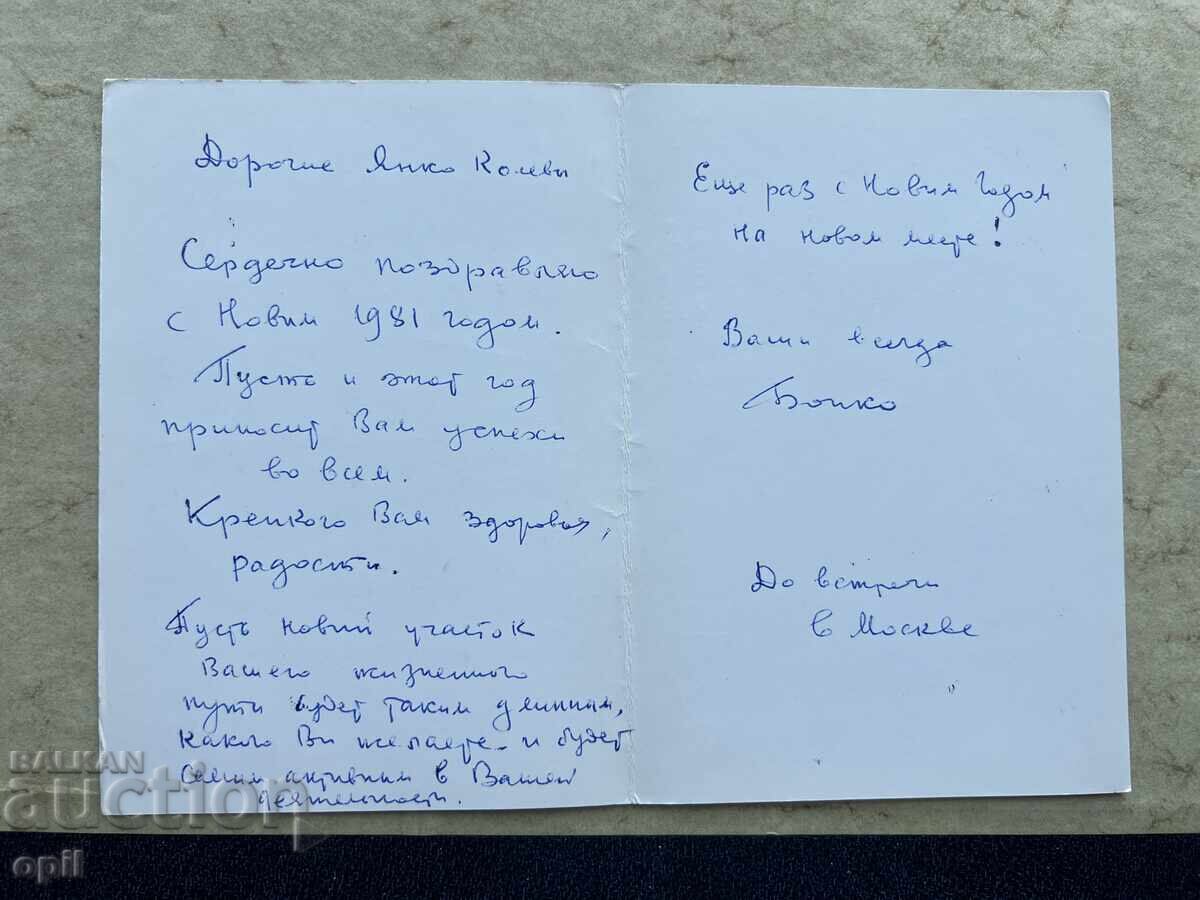 Дорогие Янко Колевы
Сердечно поздравляю
с Новим 1981 годом.
Пусть и этот год
приносит Вам успехи
во всем.
Крепкого Вам здоровья,
радости.
Пусть новий участок
Вашего жизненного
пути будет таким длинним,
какого Ви желаете и будет
самим активним в Вашей
деятельности.
Еще раз с Новим Годом
на новом месте!
Ваш всегда
Бойко
До встречи
в Москве
BALKAN
auction
opil